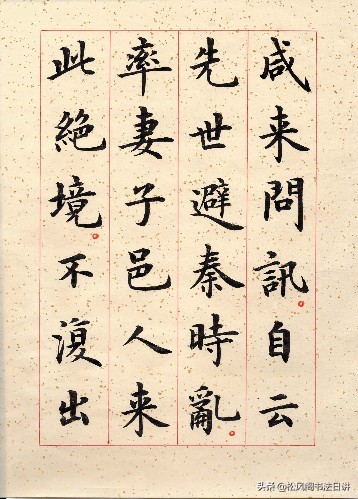 咸来問訊自云
先世避秦時亂
率妻子邑人来
此絶境不復出
头条@松风阁书法日讲